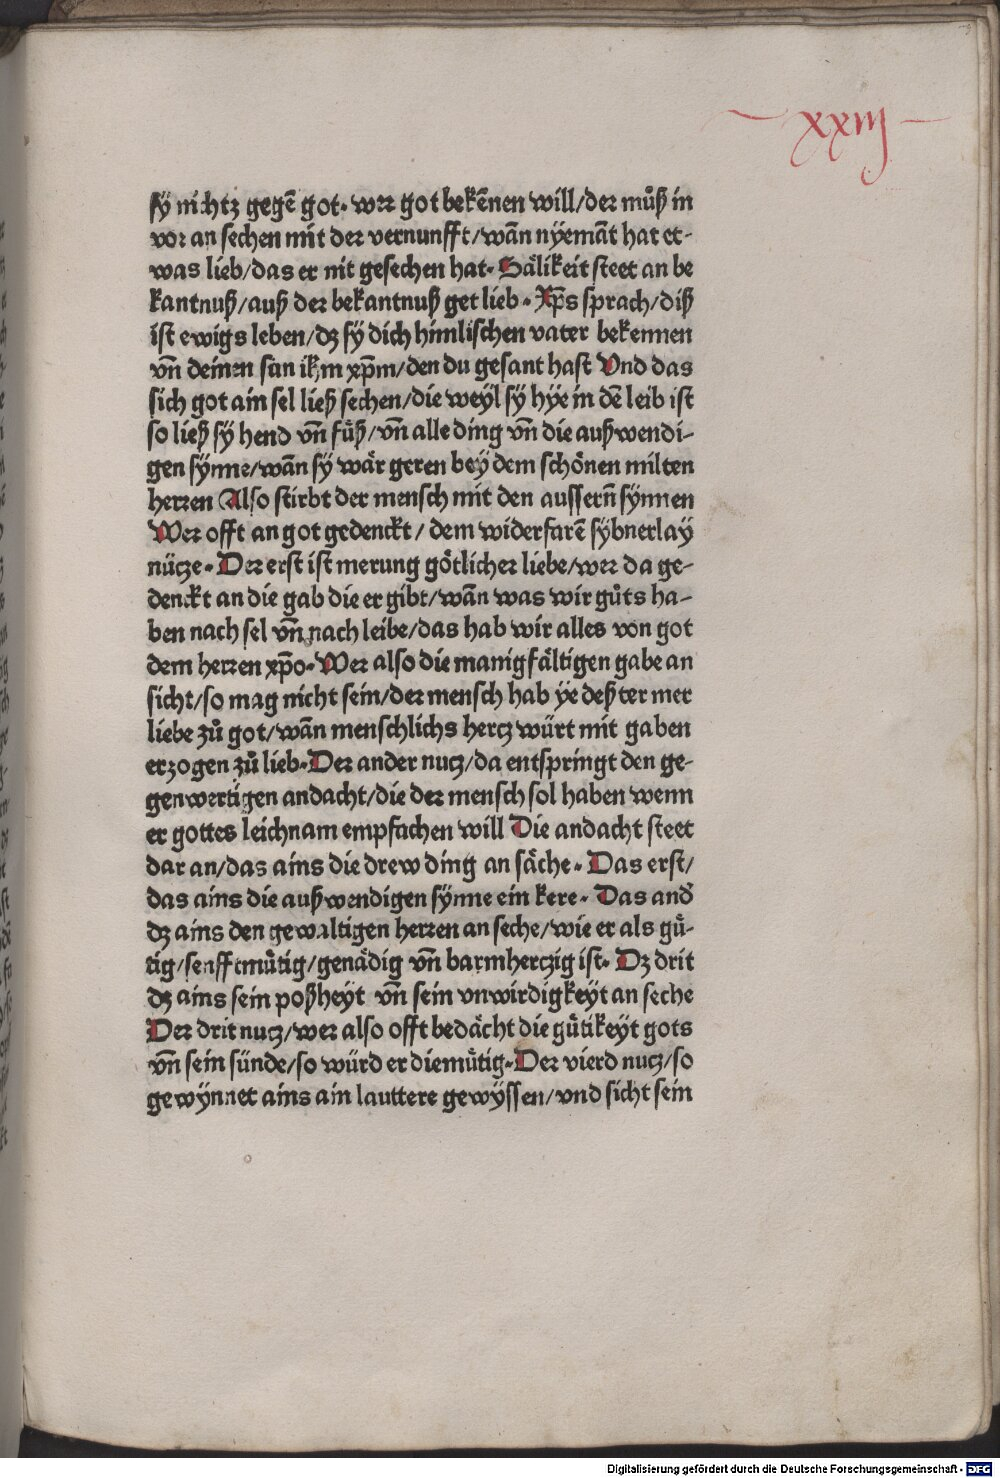 xxiij
sÿ nichtz gegē got· wer got bekēnen will/der můß in
vor an sechen mit der vernunfft/wān nÿemāt hat et-
was lieb/das er nit gesechen hat· Sälikeit steet an be
kantnuß/auß der bekantnuß get lieb· Xp̄s sprach/diß
ist ewigs leben/dz sÿ dich himlischen vater bekennen
vn̄ deinen sun ihm xp̄m/den du gesant hast Vnd das
sich got ain sel ließ sechen/die weyl sÿ hÿe in dē leib ist
so ließ sÿ hend vn̄ fůß/vn̄ alle ding vn̄ die außwendi-
gen sÿnne/wān sÿ wär geren beÿ dem schönen milten
herren Also stirbt der mensch mit den aussern̄ sÿnnen
Wer offt an got gedenckt/dem widerfarē sÿbnerlay
nücze· Der erst ist merung götlicher liebe/wer da ge-
denckt an die gab die er gibt/wān was wir gůts ha-
ben nach sel vn̄ nach leibe/das hab wir alles von got
dem herren xp̄o· Wer also die manigfältigen gabe an
sicht/so mag nicht sein/der mensch hab ÿe deßter mer
liebe zů got/wān menschlichs hercz würt mit gaben
erzogen zů lieb· Der ander nucz/da entspringt den ge-
genwertigen andacht/die der mensch sol haben wenn
er gottes leichnam empfachen will Die andacht steet
dar an/das ains die drew ding an säche· Das erst/
das ains die außwendigen sÿnne ein kere· Das and̕
dz ains den gewaltigen herren an seche/wie er als gů-
tig/senfftmůtig/genädig vn̄ barmherczig ist· Dz drit
dz ains sein poßheyt vn̄ sein vnwirdigkeyt an seche
Der drit nucz/wer also offt bedächt die gůtikeÿt gots
vn̄ sein sünde/so würd er diemůtig· Der vierd nucz/so
gewÿnnet ains ain lauttere gewÿssen/vnd sicht sein
Digitalisierung gefördert durch die Deutsche Forschungsgemeinschaft - DFG